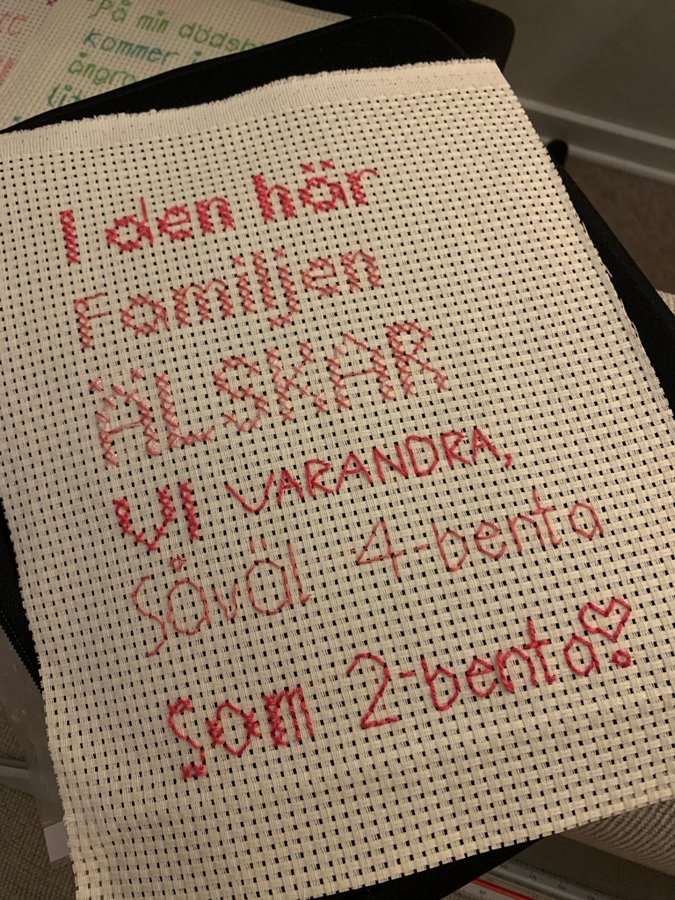 På min dödsb
kommer
ångra
I den här
Familjen
ÄLSKAR
VI VARANDRA,
Såväl 4-benta
som 2-benta